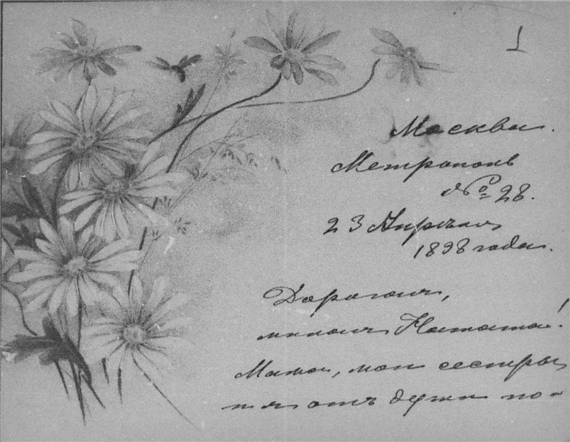 1
Москва.
Метрополь
№ 28.
23 Апрѣля
1898 года.
Дорогая,
милая Наташа!
Мама, мои сестры
и я отъ души по-